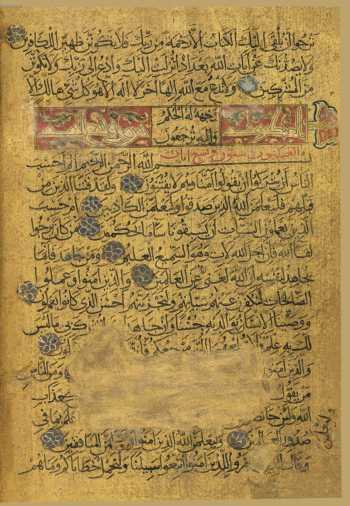 ترجوا ان يلقى اليك الكتاب الا رحمة من ربك فلا تكونن ظهيرا للكافرين
ولا يصدنك عن ايات الله بعد اذ انزلت اليك وادع الى ربك ولا تكونن
من المشركين ولا تدع مع الله الها اخر لا اله الا هو كل شى هالك الا
وجهه له الحكم
واليه ترجعون
بسم الله الرحمن الرحيم الم احسب
الناس ان يتركوا ان يقولوا امنا وهم لا يفتنون ولقد فتنا الذين من
قبلهم فليعلمن الله الذين صدقوا وليعلمن الكاذبين ام حسب
الذين يعملون السيئات ان يسبقونا ساء ما يحكمون من كان يرجوا
لقاء الله فان اجل الله لات وهو السميع العليم ومن جاهد فانما
يجاهد لنفسه ان الله لغنى عن العالمين والذين امنوا وعملوا
الصالحات لنكفرن عنهم سيئاتهم ولنجزينهم احسن الذى كانوا يعملون
ووصينا الانسان بوالديه حسنا وان جاهداك لتشرك بى ما ليس
لك به علم فلا
والذين امنوا ومن الناس
من يقول كعذاب
الله ولئن جا نصر باعلم بما فى
صدور العالمين وليعلمن الله الذين امنوا وليعلمن المنافقين
وقال الذين كفروا للذين امنوا اتبعوا سبيلنا ولنحمل خطاياكم وما هم